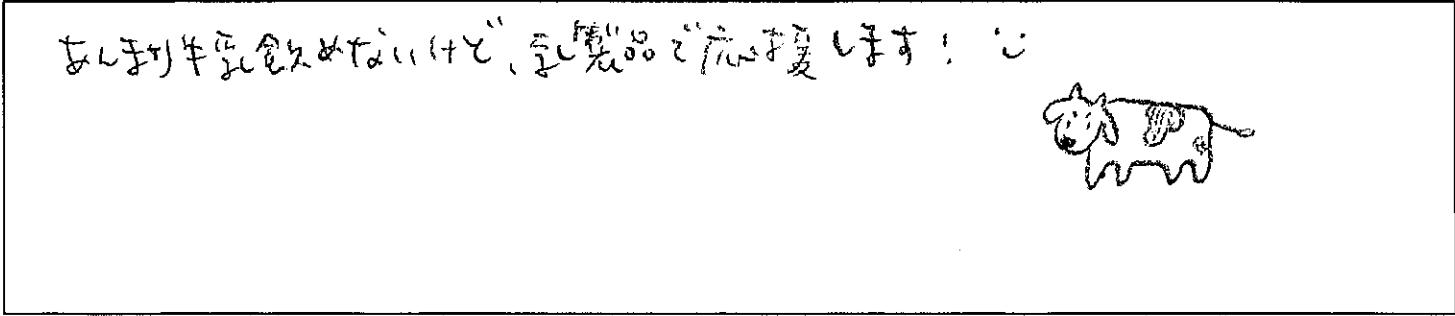 あんまり牛乳飲めないけど、乳製品で応援します！